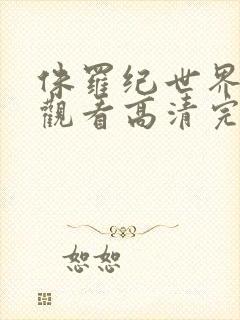 侏羅纪世界
觀看高清完
恕恕